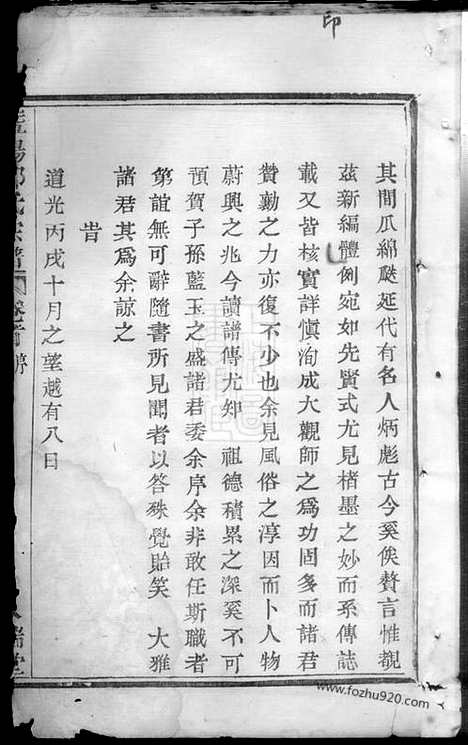 印
其間瓜綿瓞延代有名人炳彪古今奚俟贅言惟覩
茲新編體例宛如先賢式尤見楮墨之妙而系傳誌
載又皆核實詳愼洵成大觀師之爲功固多而諸君
贊勷之力亦復不少也余見風俗之淳因而卜人物
蔚興之兆今讀譜傳尤知 祖德積累之深奚不可
預賀子孫藍玉之盛諸君委余序余非敢任斯職者
第誼無可辭隨書所見聞者以答殊覺貽笑 大雅
諸君其爲余諒之
旹
道光丙戌十月之望越有八日
陽 氏宗譜 卷首 序
www.fozhu920.com